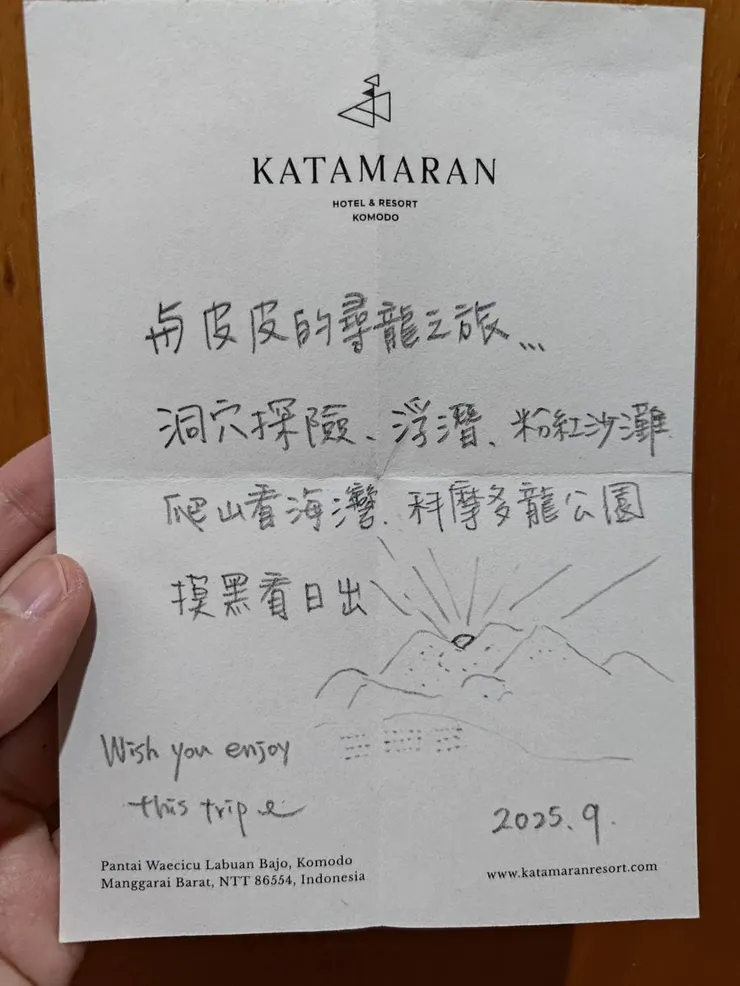 KATAMARAN
HOTEL & RESORT
KOMODO
与皮皮的尋龍之旅...
洞穴探險、浮潛、粉紅沙灘
爬山看海灣、科摩多龍公園
摸黑看日出
Wish you enjoy
this trip
2025.9.
Pantai Waecicu Labuan Bajo, Komodo
Manggarai Barat, NTT 86554, Indonesia
www.katamaranresort.com